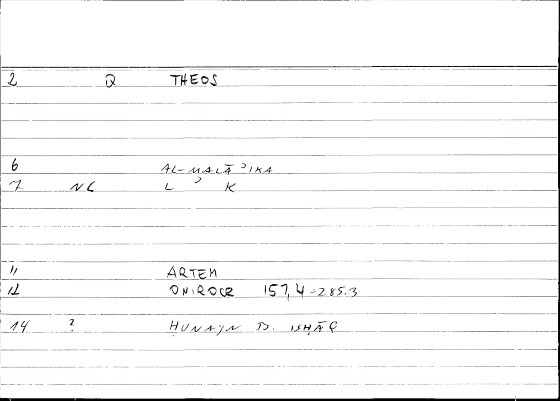 2 Q THEOS
6 AL-MALĀʾIKA
7 NC L ʾ K
11 ARTEM
12 ONIROCR 157,4 = 285.3
14 ? ḤUNAYN B. ISḤĀQ